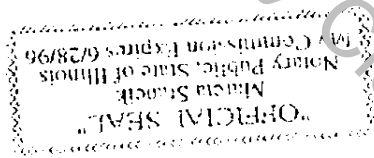 "OFFICIAL SEAL"
Stancik
Notary Public, State of Illinois
My Commission Expires 6/28/96